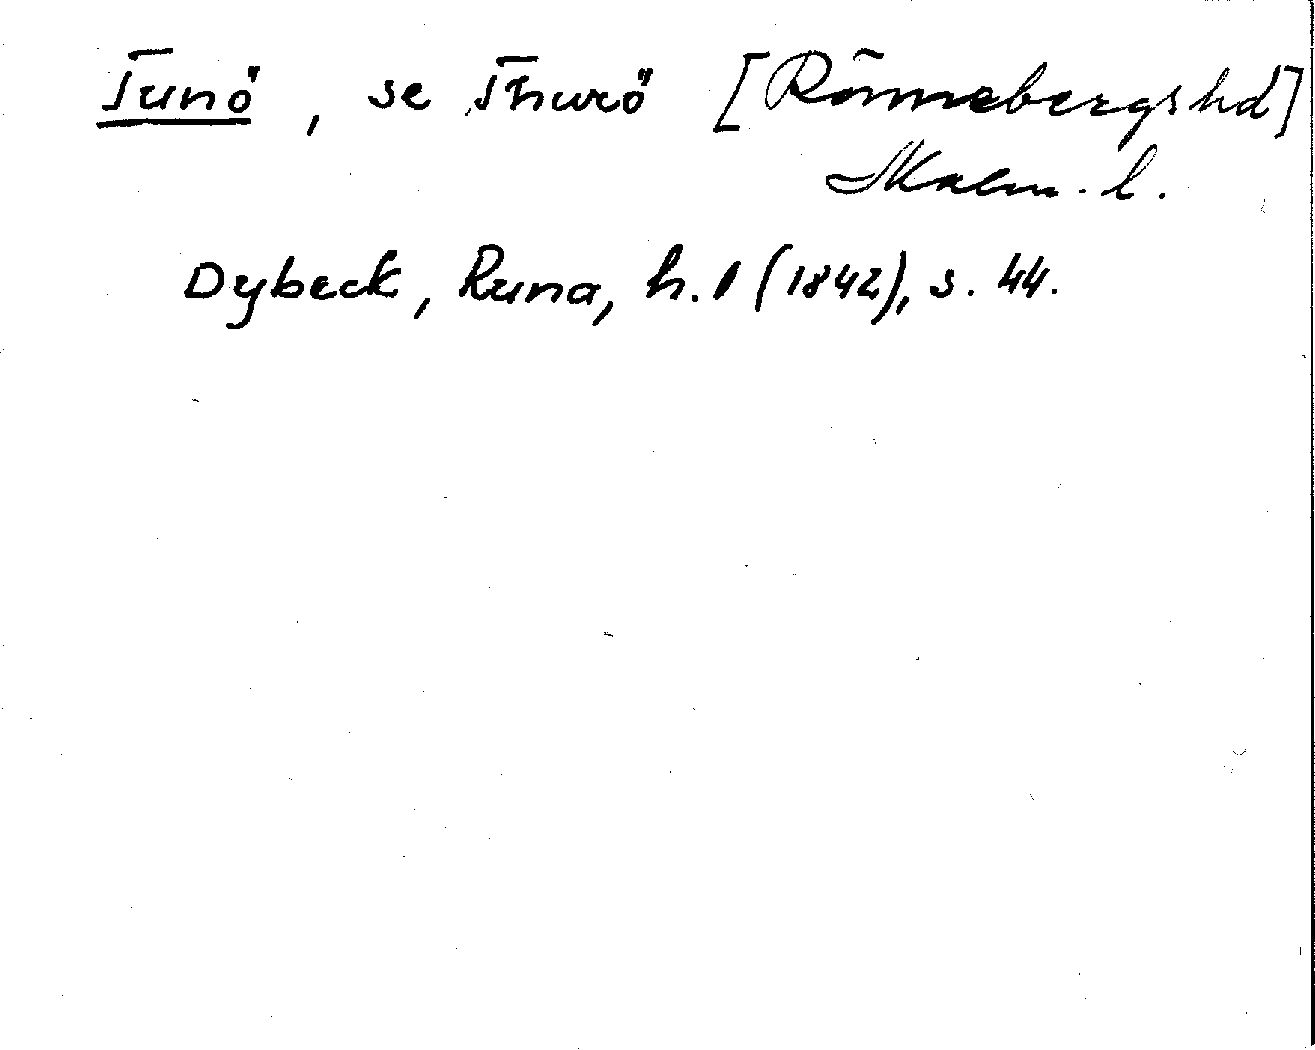 Tunö, se Thurö [Rönnebergs hd]
Malm. l.
Dybeck, Runa, h. 1 (1842), s. 44.